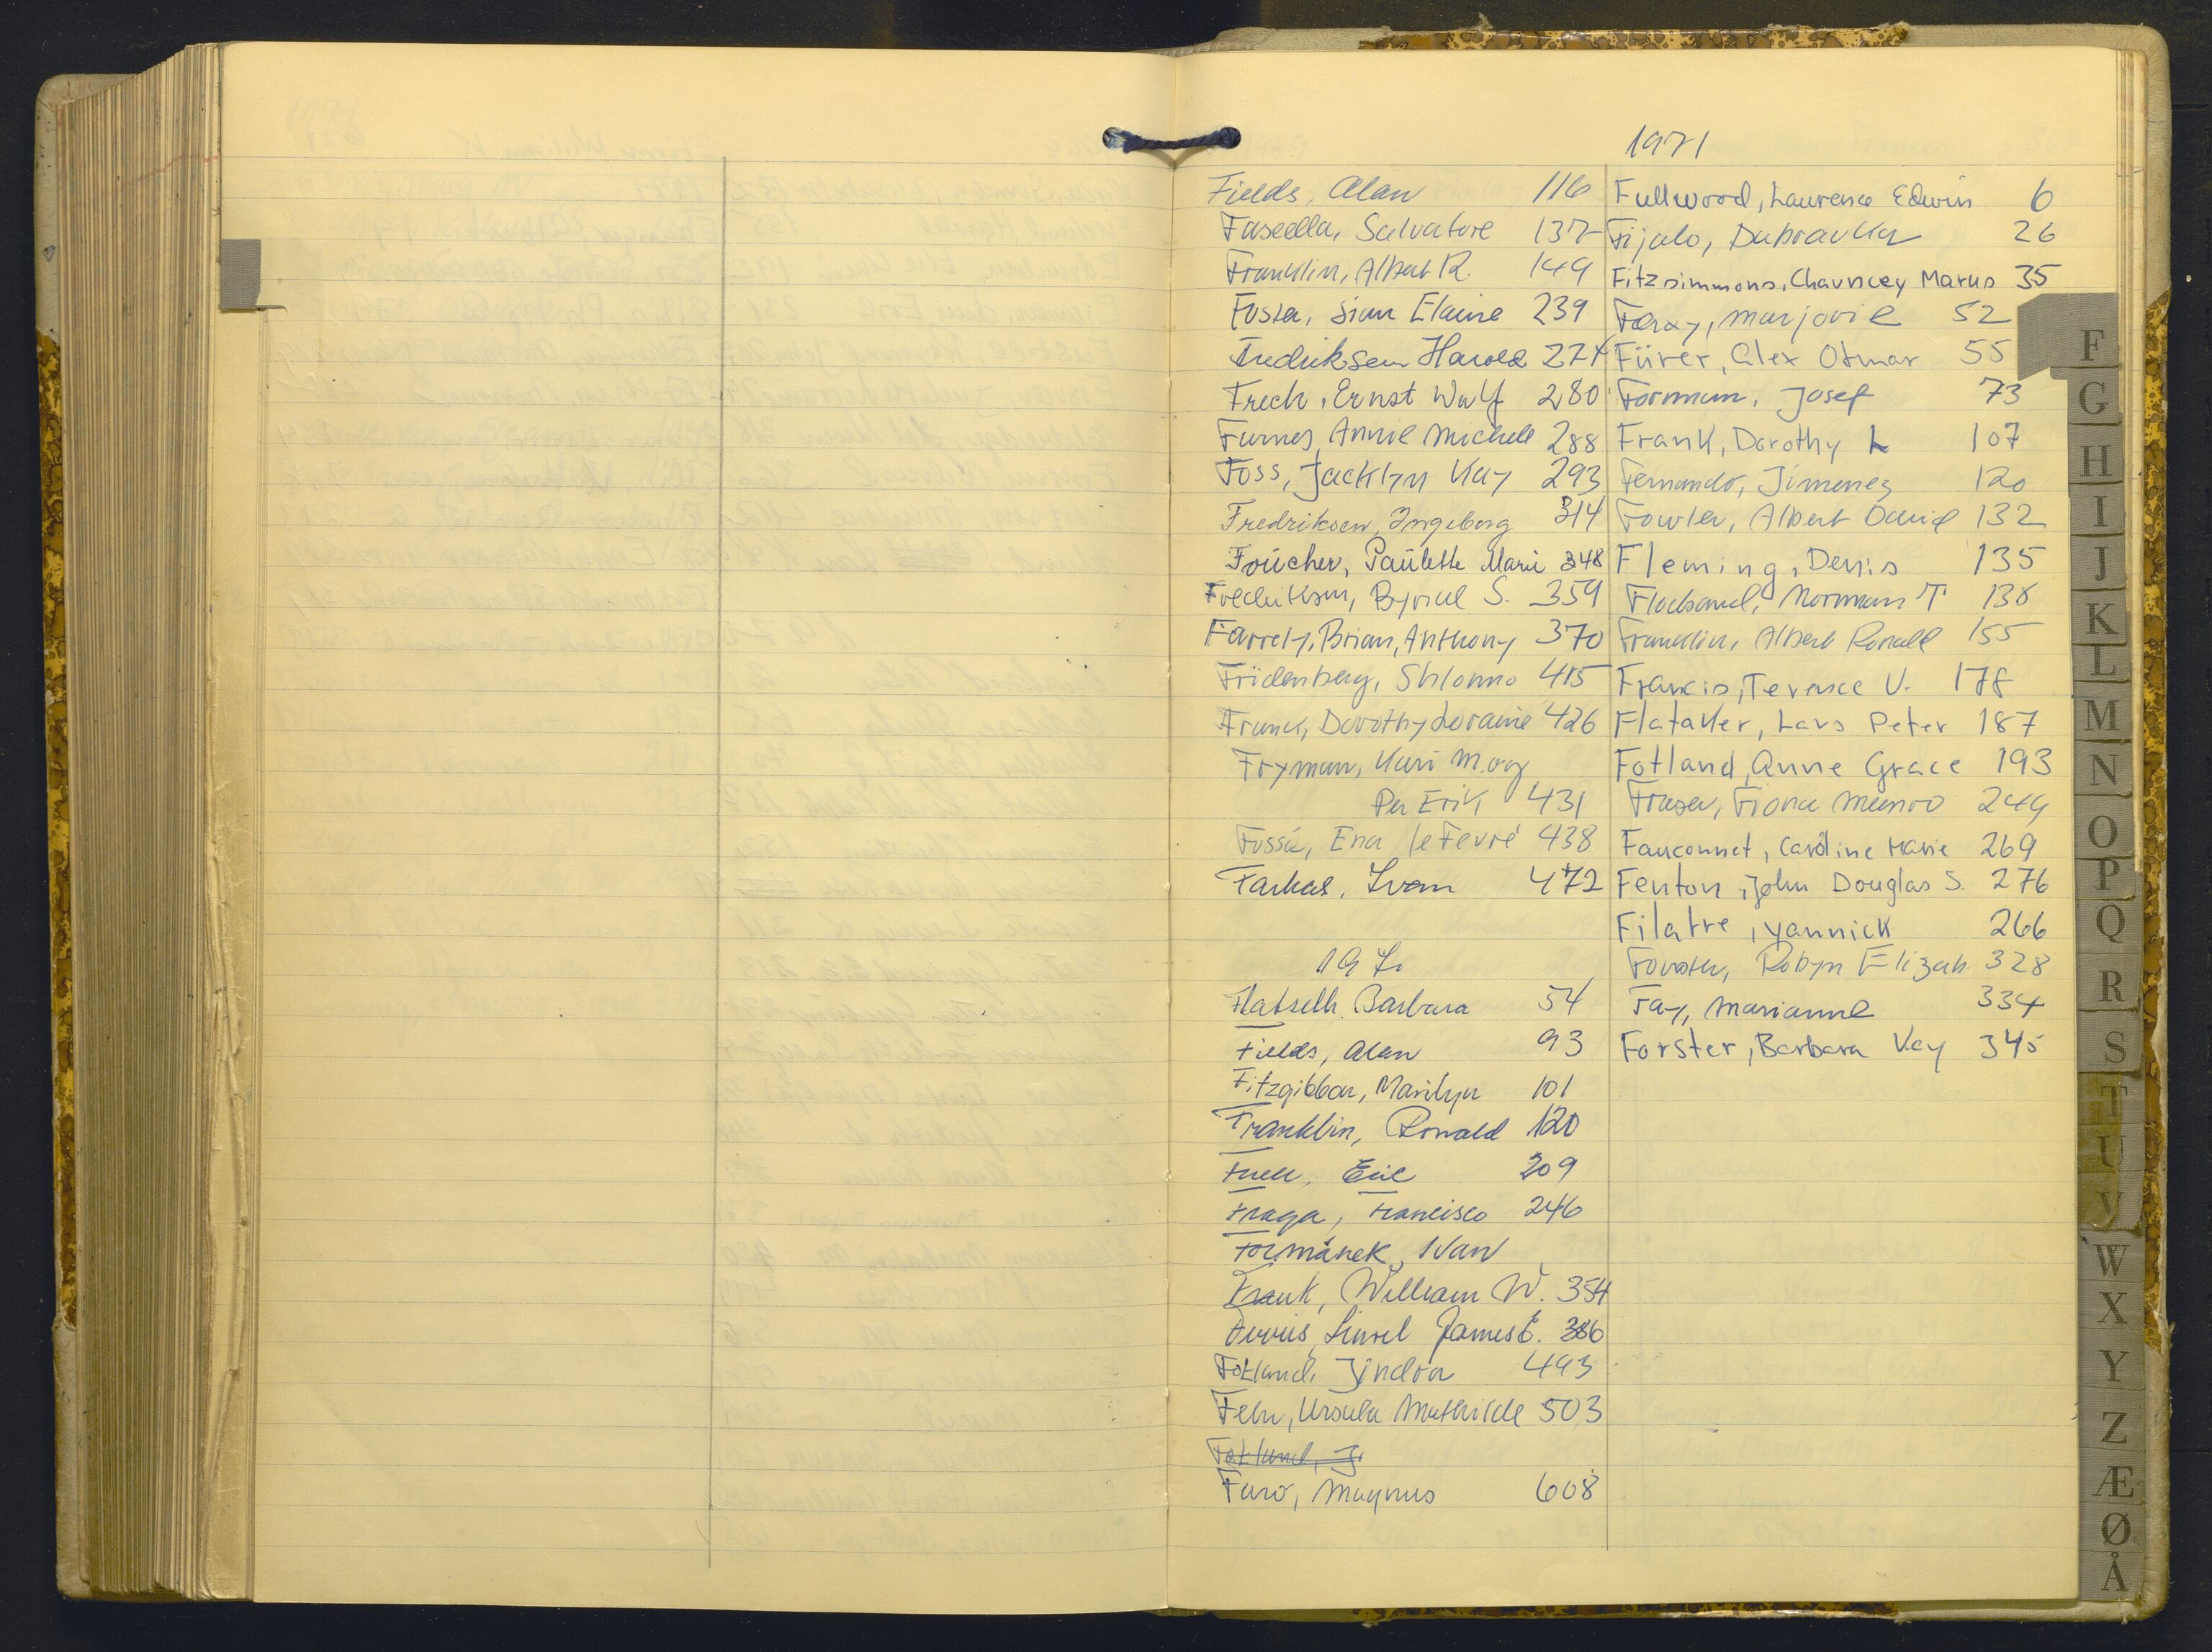 Fields, Alan 116
Fascella, Salvatore 137
Franklin, Albert R. 149
Foster, Sian Elaine 239
Fredriksen Harold 274
Frech, Ernst Wulf 280
Furnes, Annie Michell 288
Foss, Jacklyn Kay 293
Fredriksen, Ingeborg 314
Foucher, Paulette Marie 348
Fredriksen, S. 359
Farrely, Brian, Anthony 370
Fridenberg, Shlomo 415
Franck, Dorothy Loraine 426
Fryman, Kari M. og
Per Erik 431
Fossá, Ena le Fevré 438
Farkas, Ivan 472
Barbara 54
Fields, Alan 93
Fitzgibbon, Marilyn 101
Franklin, Ronald 120
209
Fraga, Francisco 246
Formánek, Ivan
Frank, William W. 354
James E. 386
Fotland, Jindra 493
Fehr, Ursula Mathilde 503
Fotland, J.
Furo, Magnus 608
1971
Fullwood, Laurence Edwin 6
Fijalo, Dubravka 26
Fitzsimmons, Chauncey Marus 35
Marjorie 52
Fürer, Alex Otmar 55
Forman, Josef 73
Frank, Dorothy L 107
Fernando, Jimenez 120
Fowler, Albert David 132
Fleming, Denis 135
Norman T 138
Franklin, Albert Ronald 155
Francis, Terence V. 178
Flataker, Lars Peter 187
Fotland, Anne Grace 193
Fraser, Fiona Munro 249
Fauconnet, Caroline Marie 269
Fenton, John Douglas S. 276
Filatre, Yannick 266
Forster, Robyn Elizab. 328
Fay, Marianne 334
Forster, Barbara Kay 345
F
G
H
I
J
K
L
M
N
O
P
Q
R
S
T
U
V
W
X
Y
Z
Æ
Ø
Å